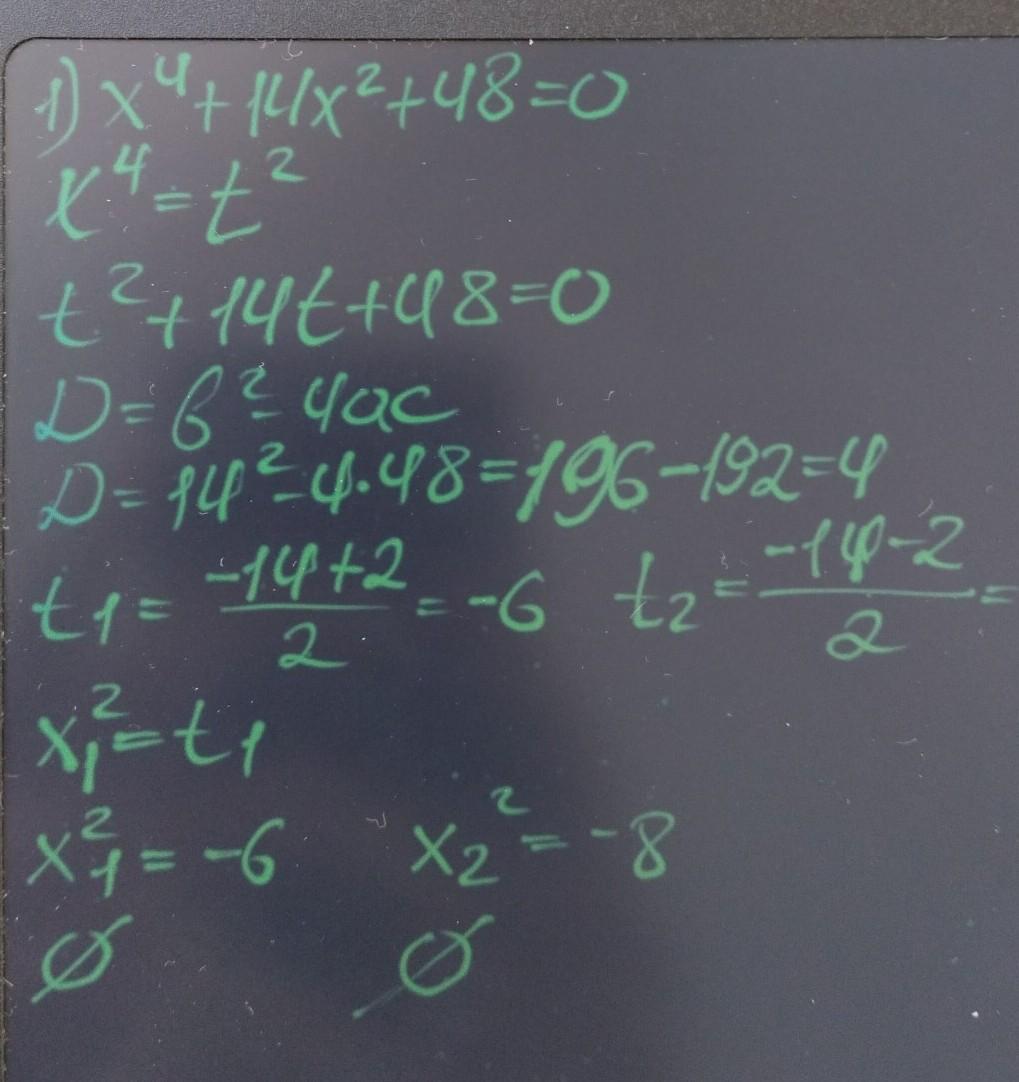 1) x⁴+14x²+48=0
x⁴=t²
t²+14t+48=0
D=b²-4ac
D=14²-4·48=196-192=4
t₁=(-14+2)/2=-6 t₂=(-14-2)/2=
x₁²=t₁
x₁²=-6 x₂²=-8
∅ ∅